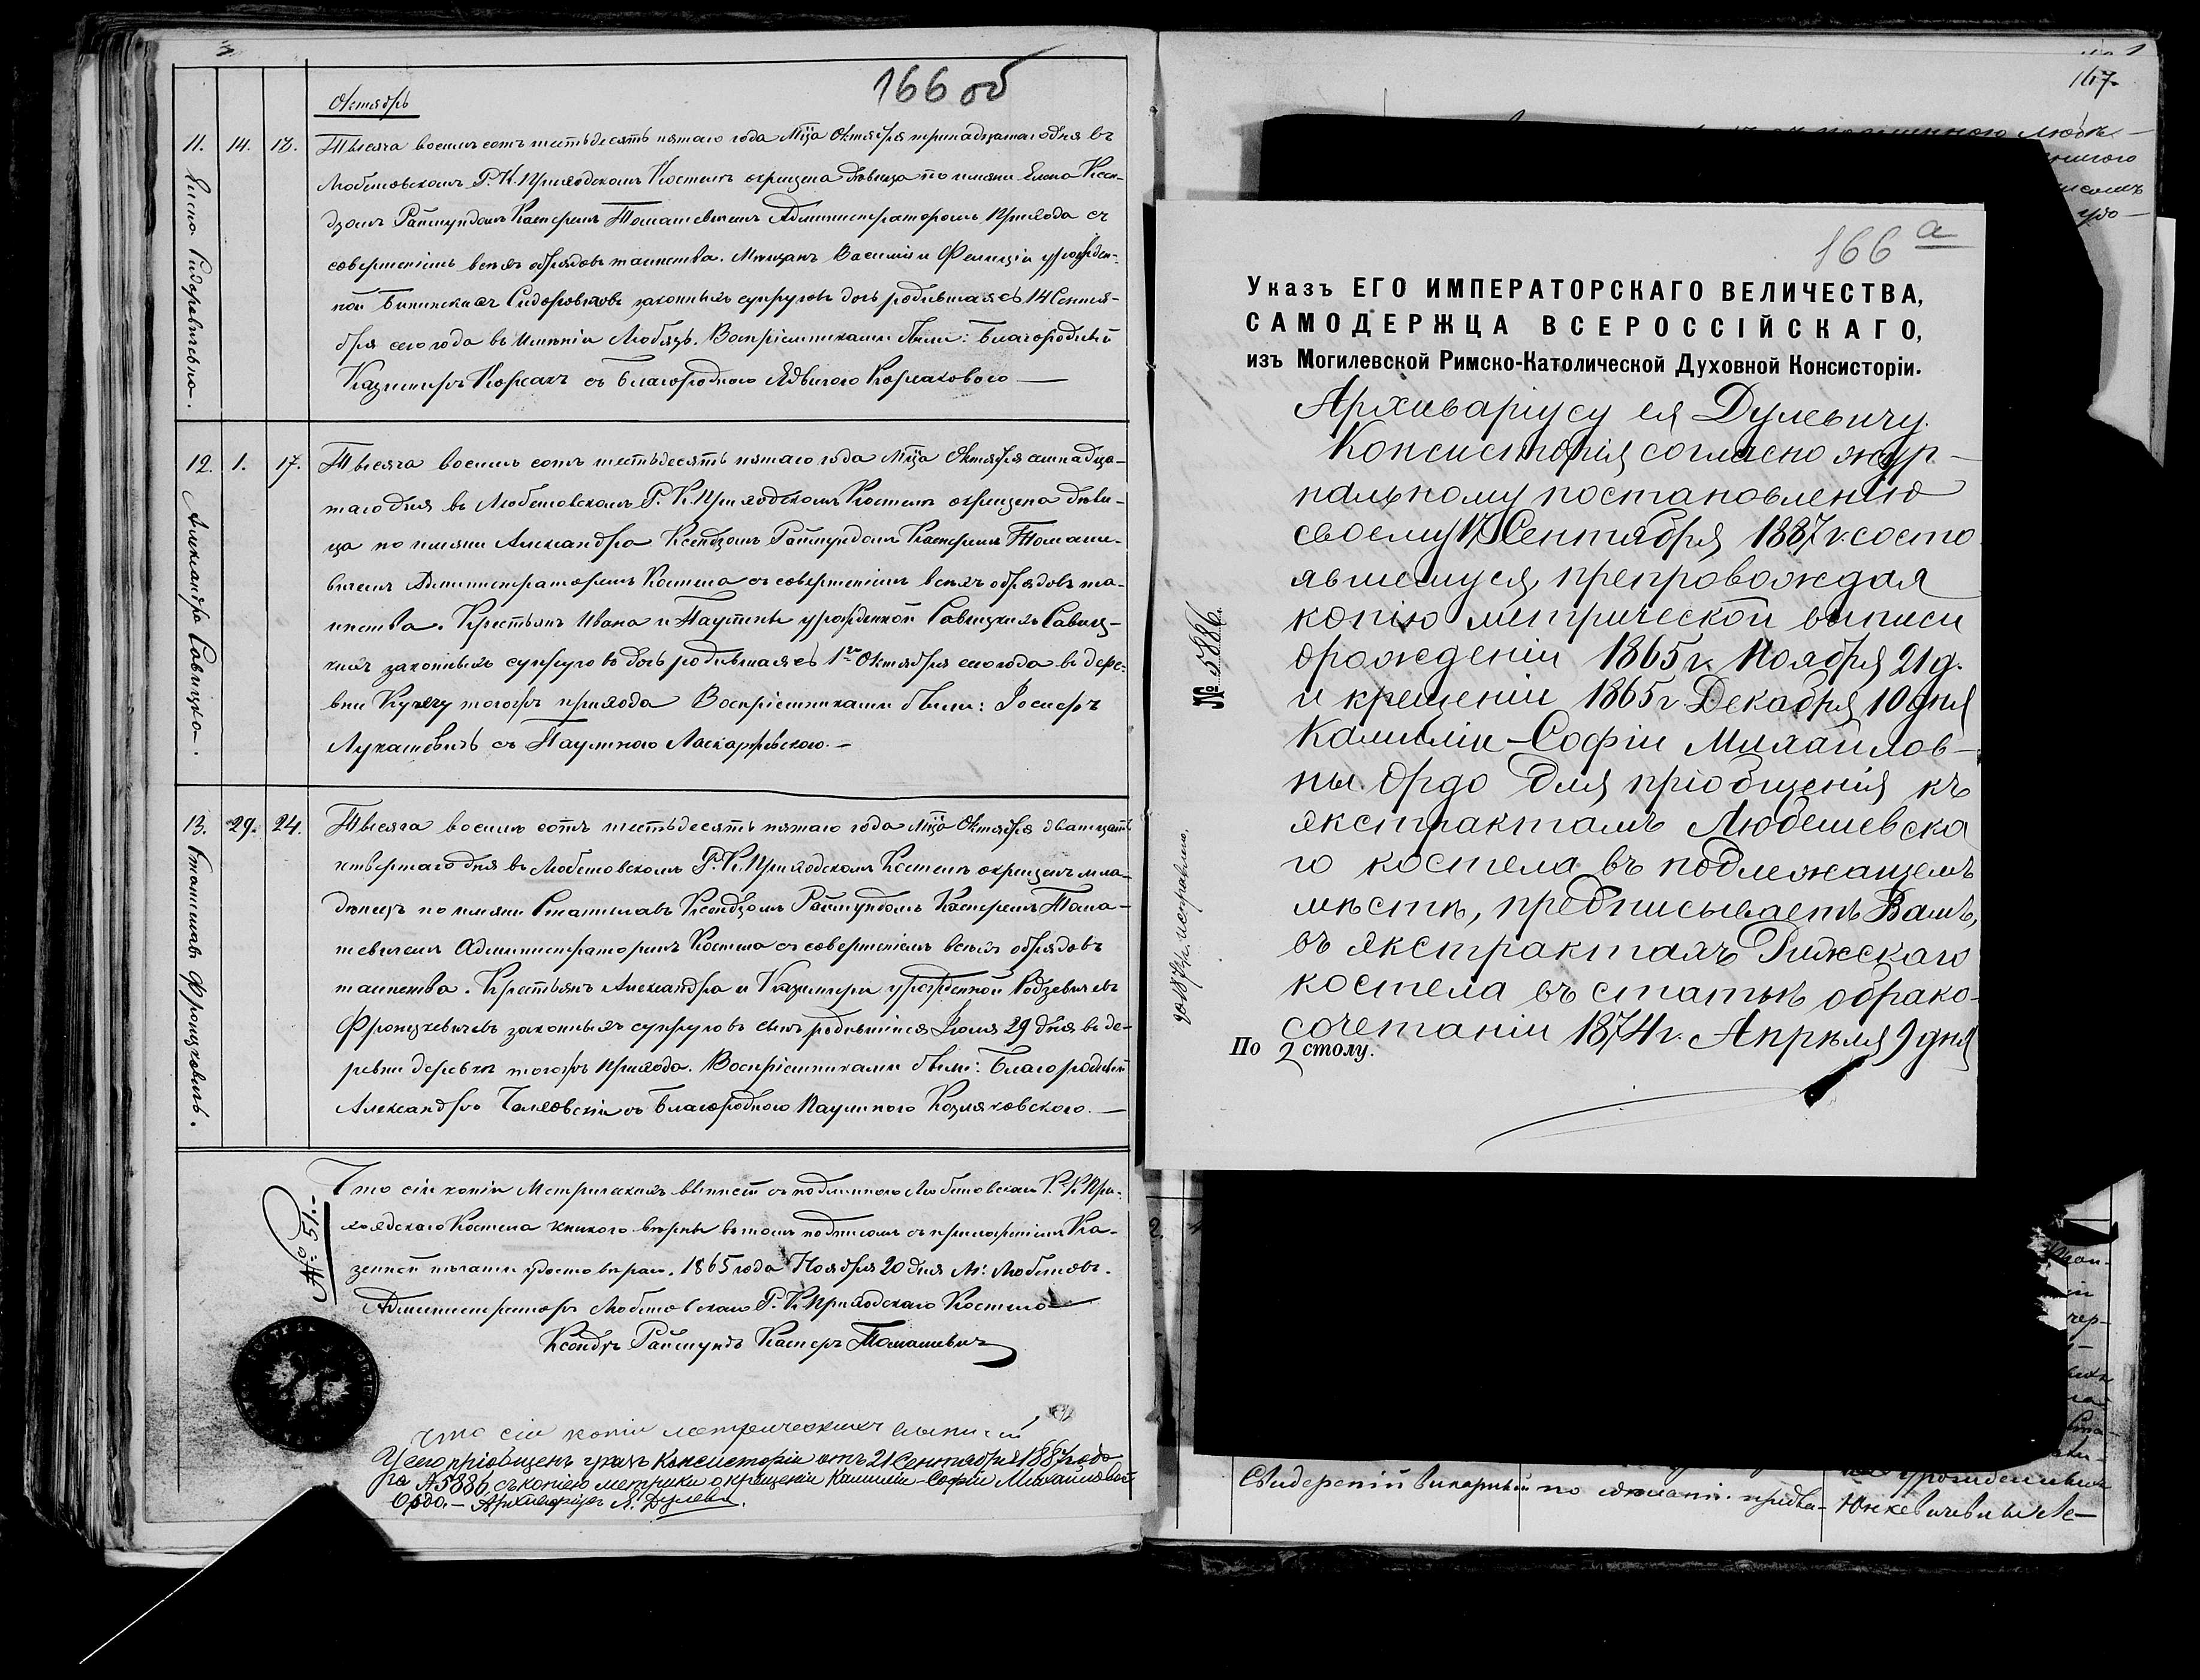 166 об
Октябрь
11. 14. 13. Тысяча восемь сотъ шестьдесятъ пятаго года Мца Октября тринадцатаго дня въ
Любешовскомъ Р. К. Приходскомъ Костелѣ окрещена дѣвица по имени Елена Ксен-
дзомъ Раймундомъ Касперемъ Томашевичемъ Администраторомъ Прихода съ
совершеніемъ всѣхъ обрядовъ таинства. Мѣщанъ Василія и Фелиціи урожден-
ной Сидоровичовъ законныхъ супруговъ дочь родившаяся 14 Сентя-
бря сего года въ имѣніи Любязь. Воспріемниками были: Благородный
Казимиръ Корсакъ съ Благородною Ядвигою Корсаковою —
Елена Сидоревичевна.
12. 1. 17. Тысяча восемь сотъ шестьдесятъ пятаго года Мца Октября семнадца-
таго дня въ Любешовскомъ Р. К. Приходскомъ Костелѣ окрещена дѣви-
ца по имени Александра Ксендзомъ Раймундомъ Касперемъ Томаше-
вичемъ Администраторомъ Костела съ совершеніемъ всѣхъ обрядовъ та-
инства. Крестьянъ Ивана и Паулины урожденной Савицкихъ Савиц-
кихъ законныхъ супруговъ дочь родившаяся 1го Октября сего года въ дере-
вни тогожъ прихода Воспріемниками были: Іосифъ
Лукашевичъ съ Паулиною
Александра Савицка.
13. 29. 24. Тысяча восемь сотъ шестьдесятъ пятаго года Мца Октября двадцать
четвертаго дня въ Любешовскомъ Р. К. Приходскомъ Костелѣ окрещенъ мла-
денецъ по имени Станиславъ Ксендзомъ Раймундомъ Касперемъ Тома-
шевичемъ Администраторомъ Костела съ совершеніемъ всѣхъ обрядовъ
таинства. Крестьянъ Александра и Казимиры урожденной Родзевичевъ
Фронцкевичевъ законныхъ супруговъ сынъ родившійся Іюля 29 дня въ де-
ревни тогожъ прихода. Воспріемниками были: Благородный
Александръ съ Благородною Паулиною
Станиславъ Фронцкевичъ.
№: 51.
Что сіи копіи Метрическихъ выписей съ подлинною Любешовскаго Р. К. При-
ходскаго Костела книгою вѣрны въ томъ подписомъ съ приложеніемъ Ка-
зенной печати удостовѣряю. 1865 года Ноября 20 дня М: Любешовъ.
Администраторъ Любешовскаго Р. К. Приходскаго Костела
Ксендзъ Раймундъ Касперъ Томашевичъ
Что сіи копіи метрическихъ выписей
У сего пріобщенъ указъ Консисторіи отъ 21 Сентября 1887 года
за №5886, съ копіею метрики о крещеніи Камилліи-Софіи Михайловой
Ордо.— Архиваріусъ Дулевичъ.
167.
166 а
Указъ ЕГО ИМПЕРАТОРСКАГО ВЕЛИЧЕСТВА,
САМОДЕРЖЦА ВСЕРОССІЙСКАГО,
изъ Могилевской Римско-Католической Духовной Консисторіи.
Архиваріусу ея Дулевичу.
Консисторія согласно жур-
нальному постановленію
своему 17 Сентября 1887 г. состо-
явшемуся, препровождая
копію метрической выписи
о рожденіи 1865 г. Ноября 21 д.
и крещеніи 1865 г. Декабря 10 дня
Камилліи-Софіи Михайлов-
ны Ордо для пріобщенія къ
экстрактамъ Любешевска
го костела въ подлежащемъ
мѣстѣ, предписываетъ Вамъ,
въ экстрактахъ Рижскаго
костела въ статьѣ о брако-
сочетаніи 1874 г. Апрѣля 9 дня
По 2 столу.
№ 5886.
Свидерскій викарный по желанію
Юнкевичевны Ле—